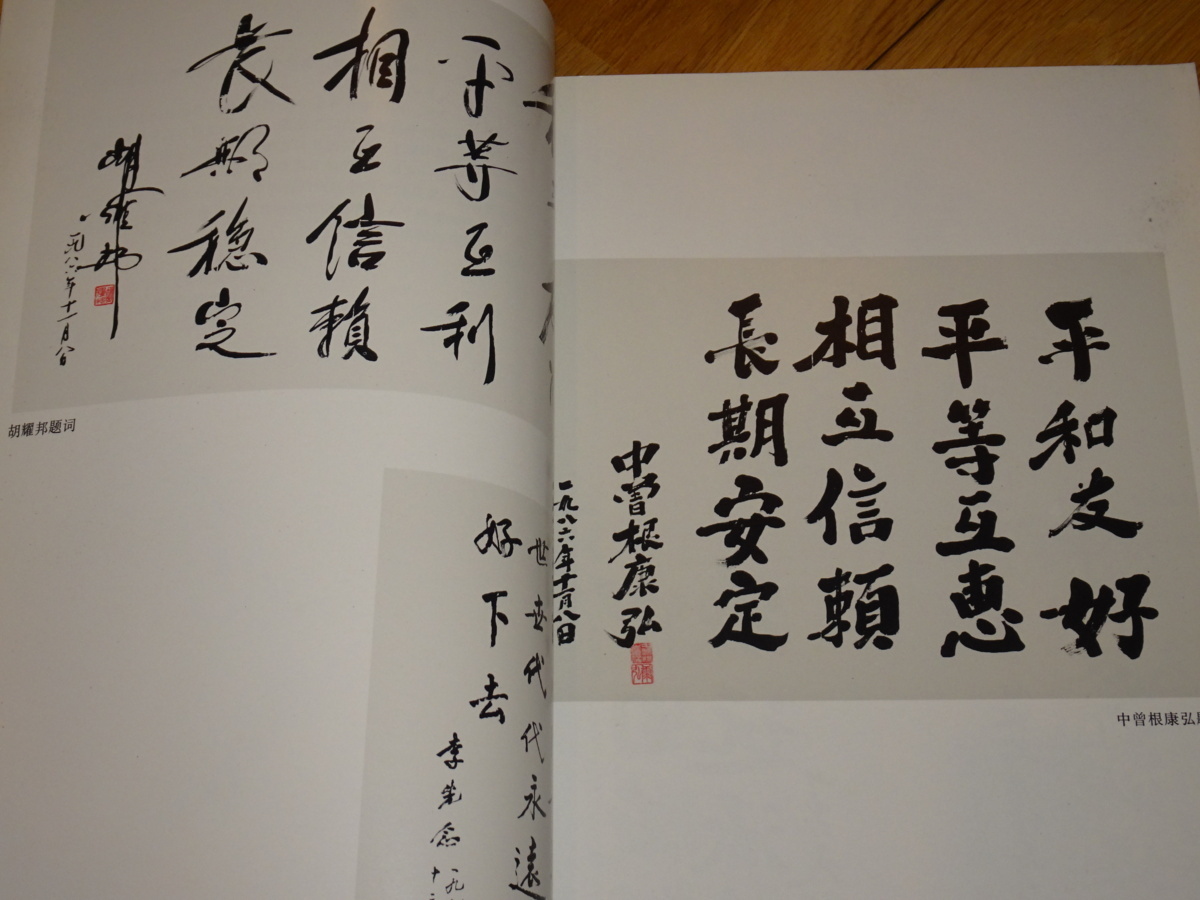 平等互利
相互信賴
長期稳定
胡耀邦
一九八六年十一月八日
胡耀邦题词
世世代代永遠
好下去
李先念
平和友好
平等互恵
相互信頼
長期安定
中曽根康弘
一九八六年十一月八日
中曾根康弘